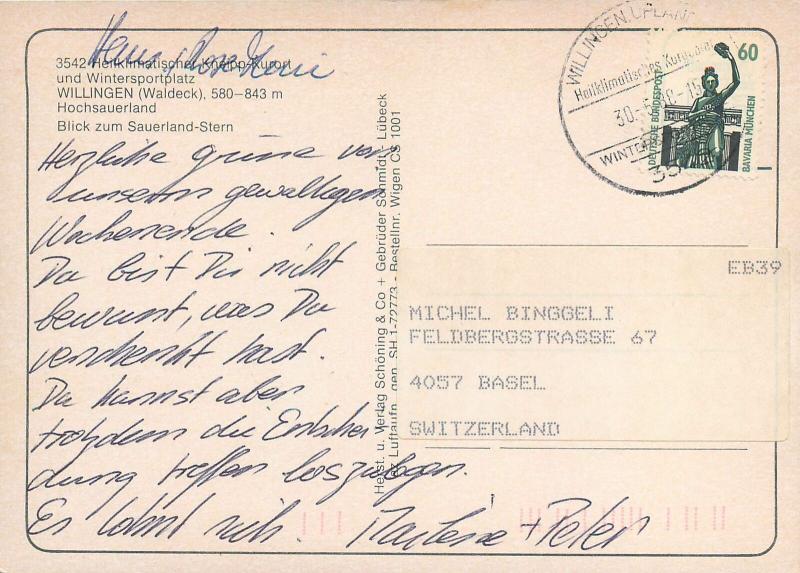 3542 Heilklimatischer Kneipp-Kurort
und Wintersportplatz
WILLINGEN (Waldeck), 580–843 m
Hochsauerland
Blick zum Sauerland-Stern
Herzliche Grüsse von
unserm gewaltigen
Wochenende.
Du bist Dir nicht
bewusst, was Du
verschenkt hast.
Du kannst aber
trotzdem die Entschei
dung treffen loszulegen.
Es lohnt sich. Marlene + Peter
Herst. u. Verlag Schöning & Co + Gebrüder Schmidt, Lübeck
Luftaufn. gen. SH 1-72773 - Bestellnr. Wigen CS 1001
WILLINGEN, UPLAND
Heilklimatisches Kurort
30.
WINTER
DEUTSCHE BUNDESPOST
60
BAVARIA MÜNCHEN
EB39
MICHEL BINGGELI
FELDBERGSTRASSE 67
4057 BASEL
SWITZERLAND